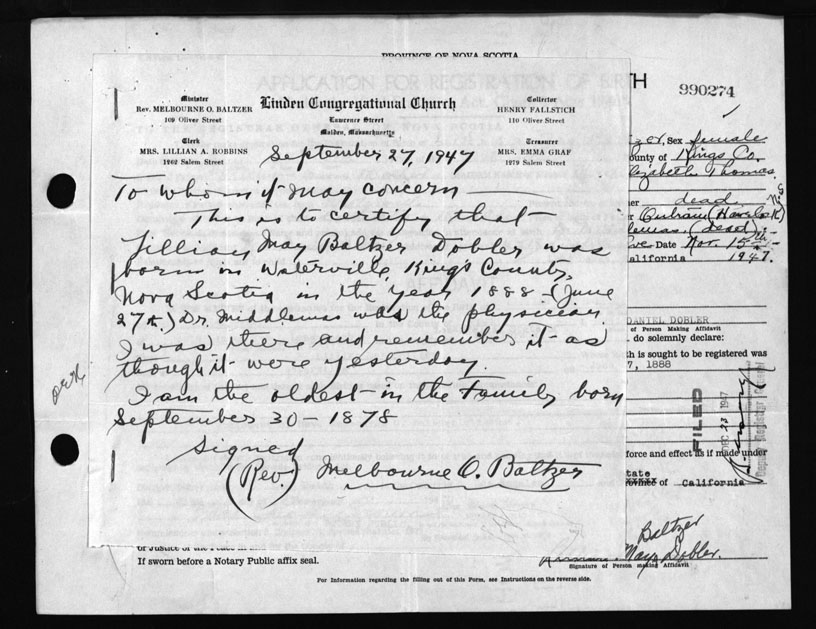 PROVINCE OF NOVA SCOTIA
APPLICATION FOR REGISTRATION OF BIRTH
990274
Minister
Rev. MELBOURNE O. BALTZER
109 Oliver Street
Clerk
MRS. LILLIAN A. ROBBINS
1262 Salem Street
Linden Congregational Church
Lawrence Street
Malden, Massachusetts
Collector
HENRY FALLSTICH
110 Oliver Street
Treasurer
MRS. EMMA GRAF
1279 Salem Street
September 27, 1947
To whom it may concern
This is to certify that
Lillian May Baltzer Dobler was
born in Waterville, Kings County,
Nova Scotia in the year 1888 (June
27th.) Dr. Middlemas was the physician
I was there and remember it as
though it were yesterday.
I am the oldest in the Family born
September 30 - 1878
Signed
(Rev.) Melbourne O. Baltzer
Sex female
ounty of Kings Co.
lizabeth Thomas
dead
(dead)
Date Nov. 15th
alifornia 1947.
DANIEL DOBLER
of Person Making Affidavit
do solemnly declare:
th is sought to be registered was
7, 1888
FILED
DEC 23 1947
Deputy Registrar General
force and effect as if made under
State
of California
Baltzer
May Dobler.
Signature of Person making Affidavit
of Justice of the Peace in
If sworn before a Notary Public affix seal.
For Information regarding the filling out of this Form, see Instructions on the reverse side.